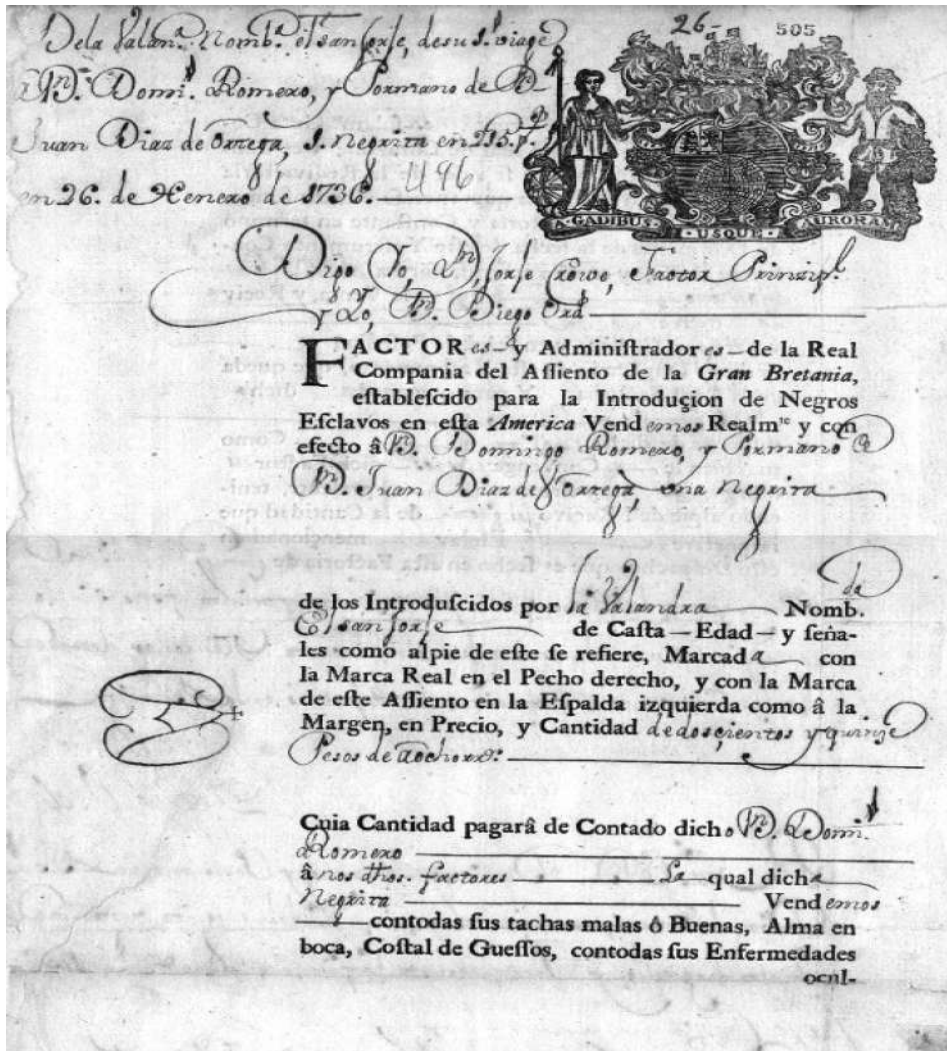 26- 505
Dela Valan.ª Nomb.ª el san Jorje, de su 1. viage
a Dn. Domi.º Romero, y Por mano de Dn.
Juan Diaz de Ortega, 1. Negrita en 215. p.s
en 26. de Henero de 1736. 496
A·GADIBUS· ·USQUE· AURORAM
Digo Yo, Dn. Jorje Crowe, Factor Prinzip.l
y Yo, Dn. Diego Ord
FACTOR es - y Adminiſtrador es - de la Real
Compania del Aſſiento de la Gran Bretania,
eſtableſcido para la Introduçion de Negros
Eſclavos en eſta America Vend emos Realm.te y con
efecto â Dn. Domingo Romero, y Por mano de
Dn. Juan Diaz de Ortega una Negrita
de los Introduſcidos por la Valandra Nomb.da
El san Jorje de Caſta — Edad — y ſeña-
les como alpie de eſte ſe refiere, Marcad a con
la Marca Real en el Pecho derecho, y con la Marca
de eſte Aſſiento en la Eſpalda izquierda como â la
Margen, en Precio, y Cantidad de dosçientos y quinze
Pesos de aocho rr.s
Cuia Cantidad pagarâ de Contado dicho Dn. Domi.º
Romero
â nos dhos. factores La qual dich a
Negrita Vend emos
contodas ſus tachas malas ô Buenas, Alma en
boca, Coſtal de Gueſſos, contodas ſus Enfermedades
ocul-